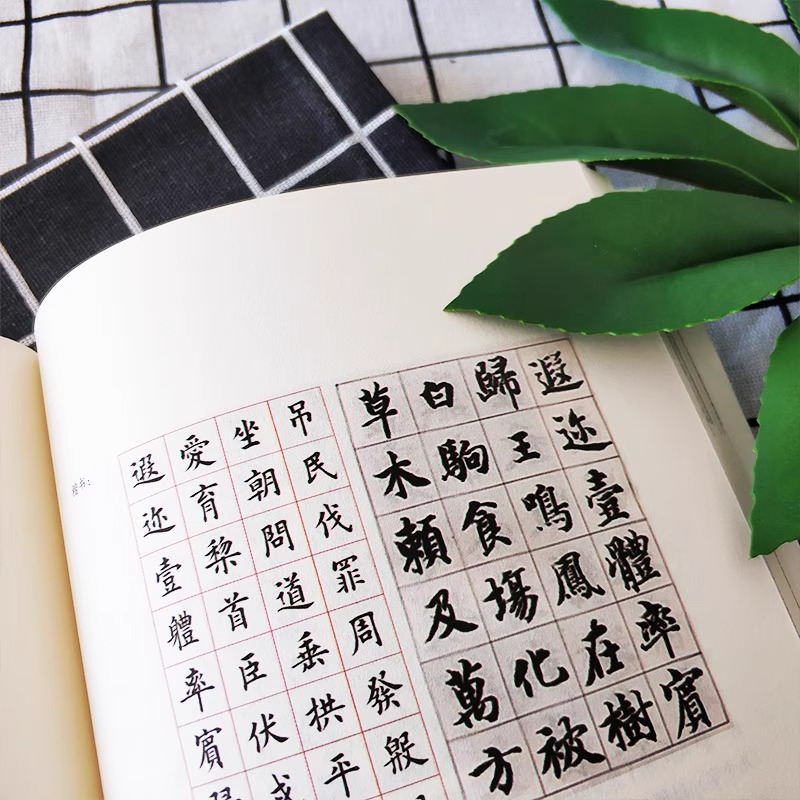 遐迩壹體率賓
歸王鳴鳳在樹
白駒食場化被
草木賴及萬方
楷书：
吊民伐罪周發殷
坐朝問道垂拱平
愛育黎首臣伏戎
遐迩壹軆率賓